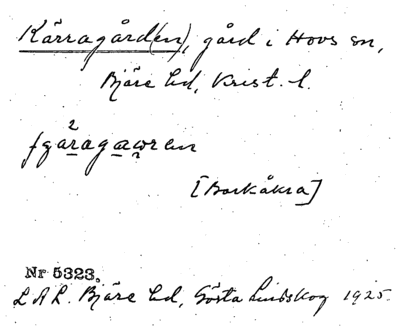 Kärragård(en), gård i Hovs sn,
Bjäre hd, Krist. l.
[Barkåkra]
Nr 5323.
L A L. Bjäre hd, Gösta Lindskog 1925.